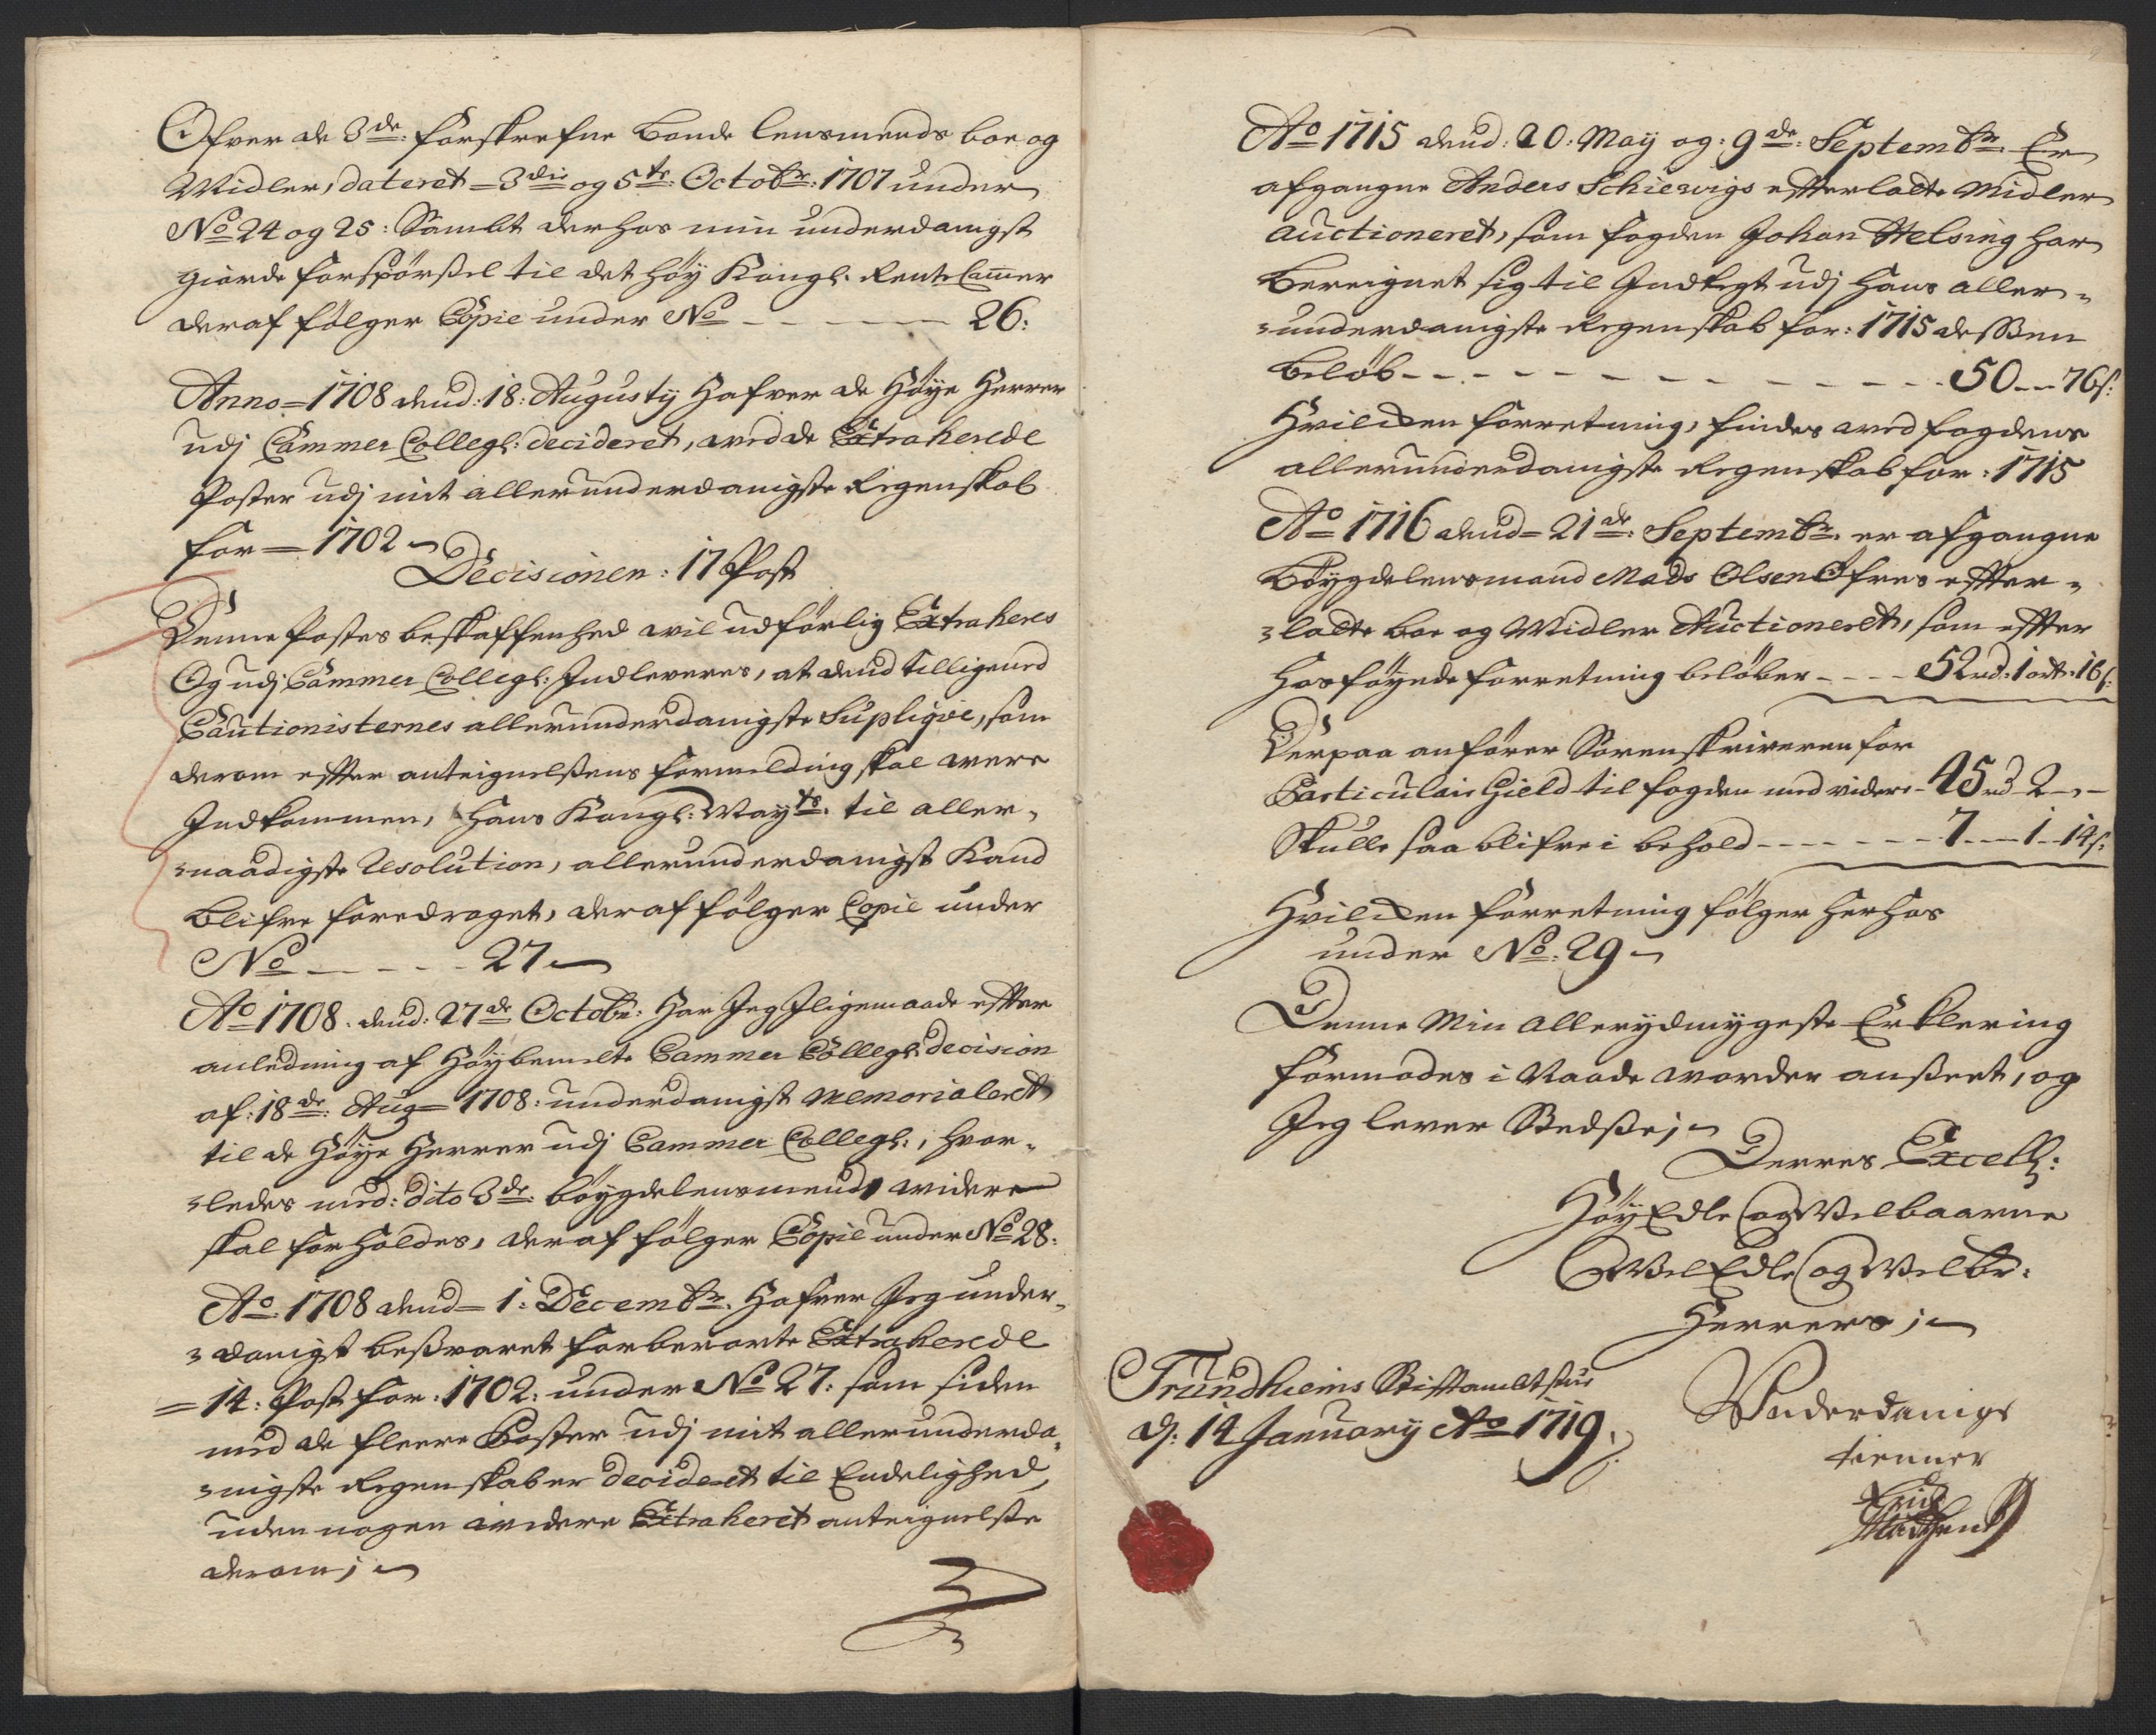 Ofver de 3de: forskrefne bonde lensmends boe og
Midler, dateret = 3die og 5te: Octobr: 1707 under
No 24 og 25: Sambt derhos min underdanigst
giorde forspörßel til det höy Kongl: Rente Cammer
deraf fölger Copie under No - - - - - 26:
Anno = 1708 dend: 18: Augusty Hafver de Höye Herrer
udj Cammer Collegl: decideret, ved de Extraherede
Poster udj mit allerunderdanigste Regenskab
for = 1702
Decisionen: 17 Post
Denne Postes beskaffenhed vil udförlig Extraheres
Og udj Cammer Collegl: Indleveres, at dend tilligemed
Cautionisternes allerunderdanigste Supliqve, som
derom efter antegnelßens formelding skal være
Indkommen, Hans Kongl: Mayts. til aller-
naadigste Resolution, allerunderdanigst Kand
blifve foredraget, deraf fölger Copie under
No - - - - 27
Ao 1708. dend: 27de Octobr: Har Jeg Jligemaade efter
anledning af Höybemelte Cammer Collegl: decision
af: 18de: Aug = 1708: underdanigst Memorialeret
til de Höye Herrer udj Cammer Collegl:, hvor-
ledes med: dito 3de: böygdelensmend videre
skal forholdes, deraf fölger Copie under No 28:
Ao. 1708 dend = 1: Decembr. Hafver Jeg under-
danigst beßvaret forberörte Extraherede
= 14: Post for: 1702: under No 27: som siden
med de fleere Poster udj mit allerunderda-
nigste Regenskaber decideret til Endelighed,
uden nogen videre Extraheret antegnelße
derom;
Ao 1715 dend: 20: May og: 9de: Septembr. Er
afgangne Anders Schiervigs efterladte Midler
auctioneret, som fogden Johan Helsing har
bereignet sig til Indtegt udj hans aller-
underdanigste Regenskab for: 1715 deßen
belöb - - - - - - - - - - - 50 - - 76s:
Hvilcken forretning, findes ved fogdens
allerunderdanigste Regenskab for: 1715
Ao 1716 dend = 21de: Septembr. er afgangne
böygdelensmand Mads Olsen Øfres efter-
ladte boe og Midler Auctioneret, som efter
hosföyede forretning belöber - - - - 52rd: 1ort: 16s:
Derpaa anförer Sorenskriveren for
Particulair Gield til fogden med videre - 45rd 2 - -
Skulle saa blifve i behold - - - - - - 7 - - 1 - 14s:
Hvilcken forretning fölger herhos
under No. 29
Denne Min Allerydmygeste Erklering
formodes i Naade vorder anßeet, og
Jeg lever Stedße;
Derres Excell:
HöyEdle og Velbaarne
VelEdle og Velbr:
Herrers;
Trundhiems Stiftambtstue
d: 14 January Ao 1719.
Underdanigs
tienner